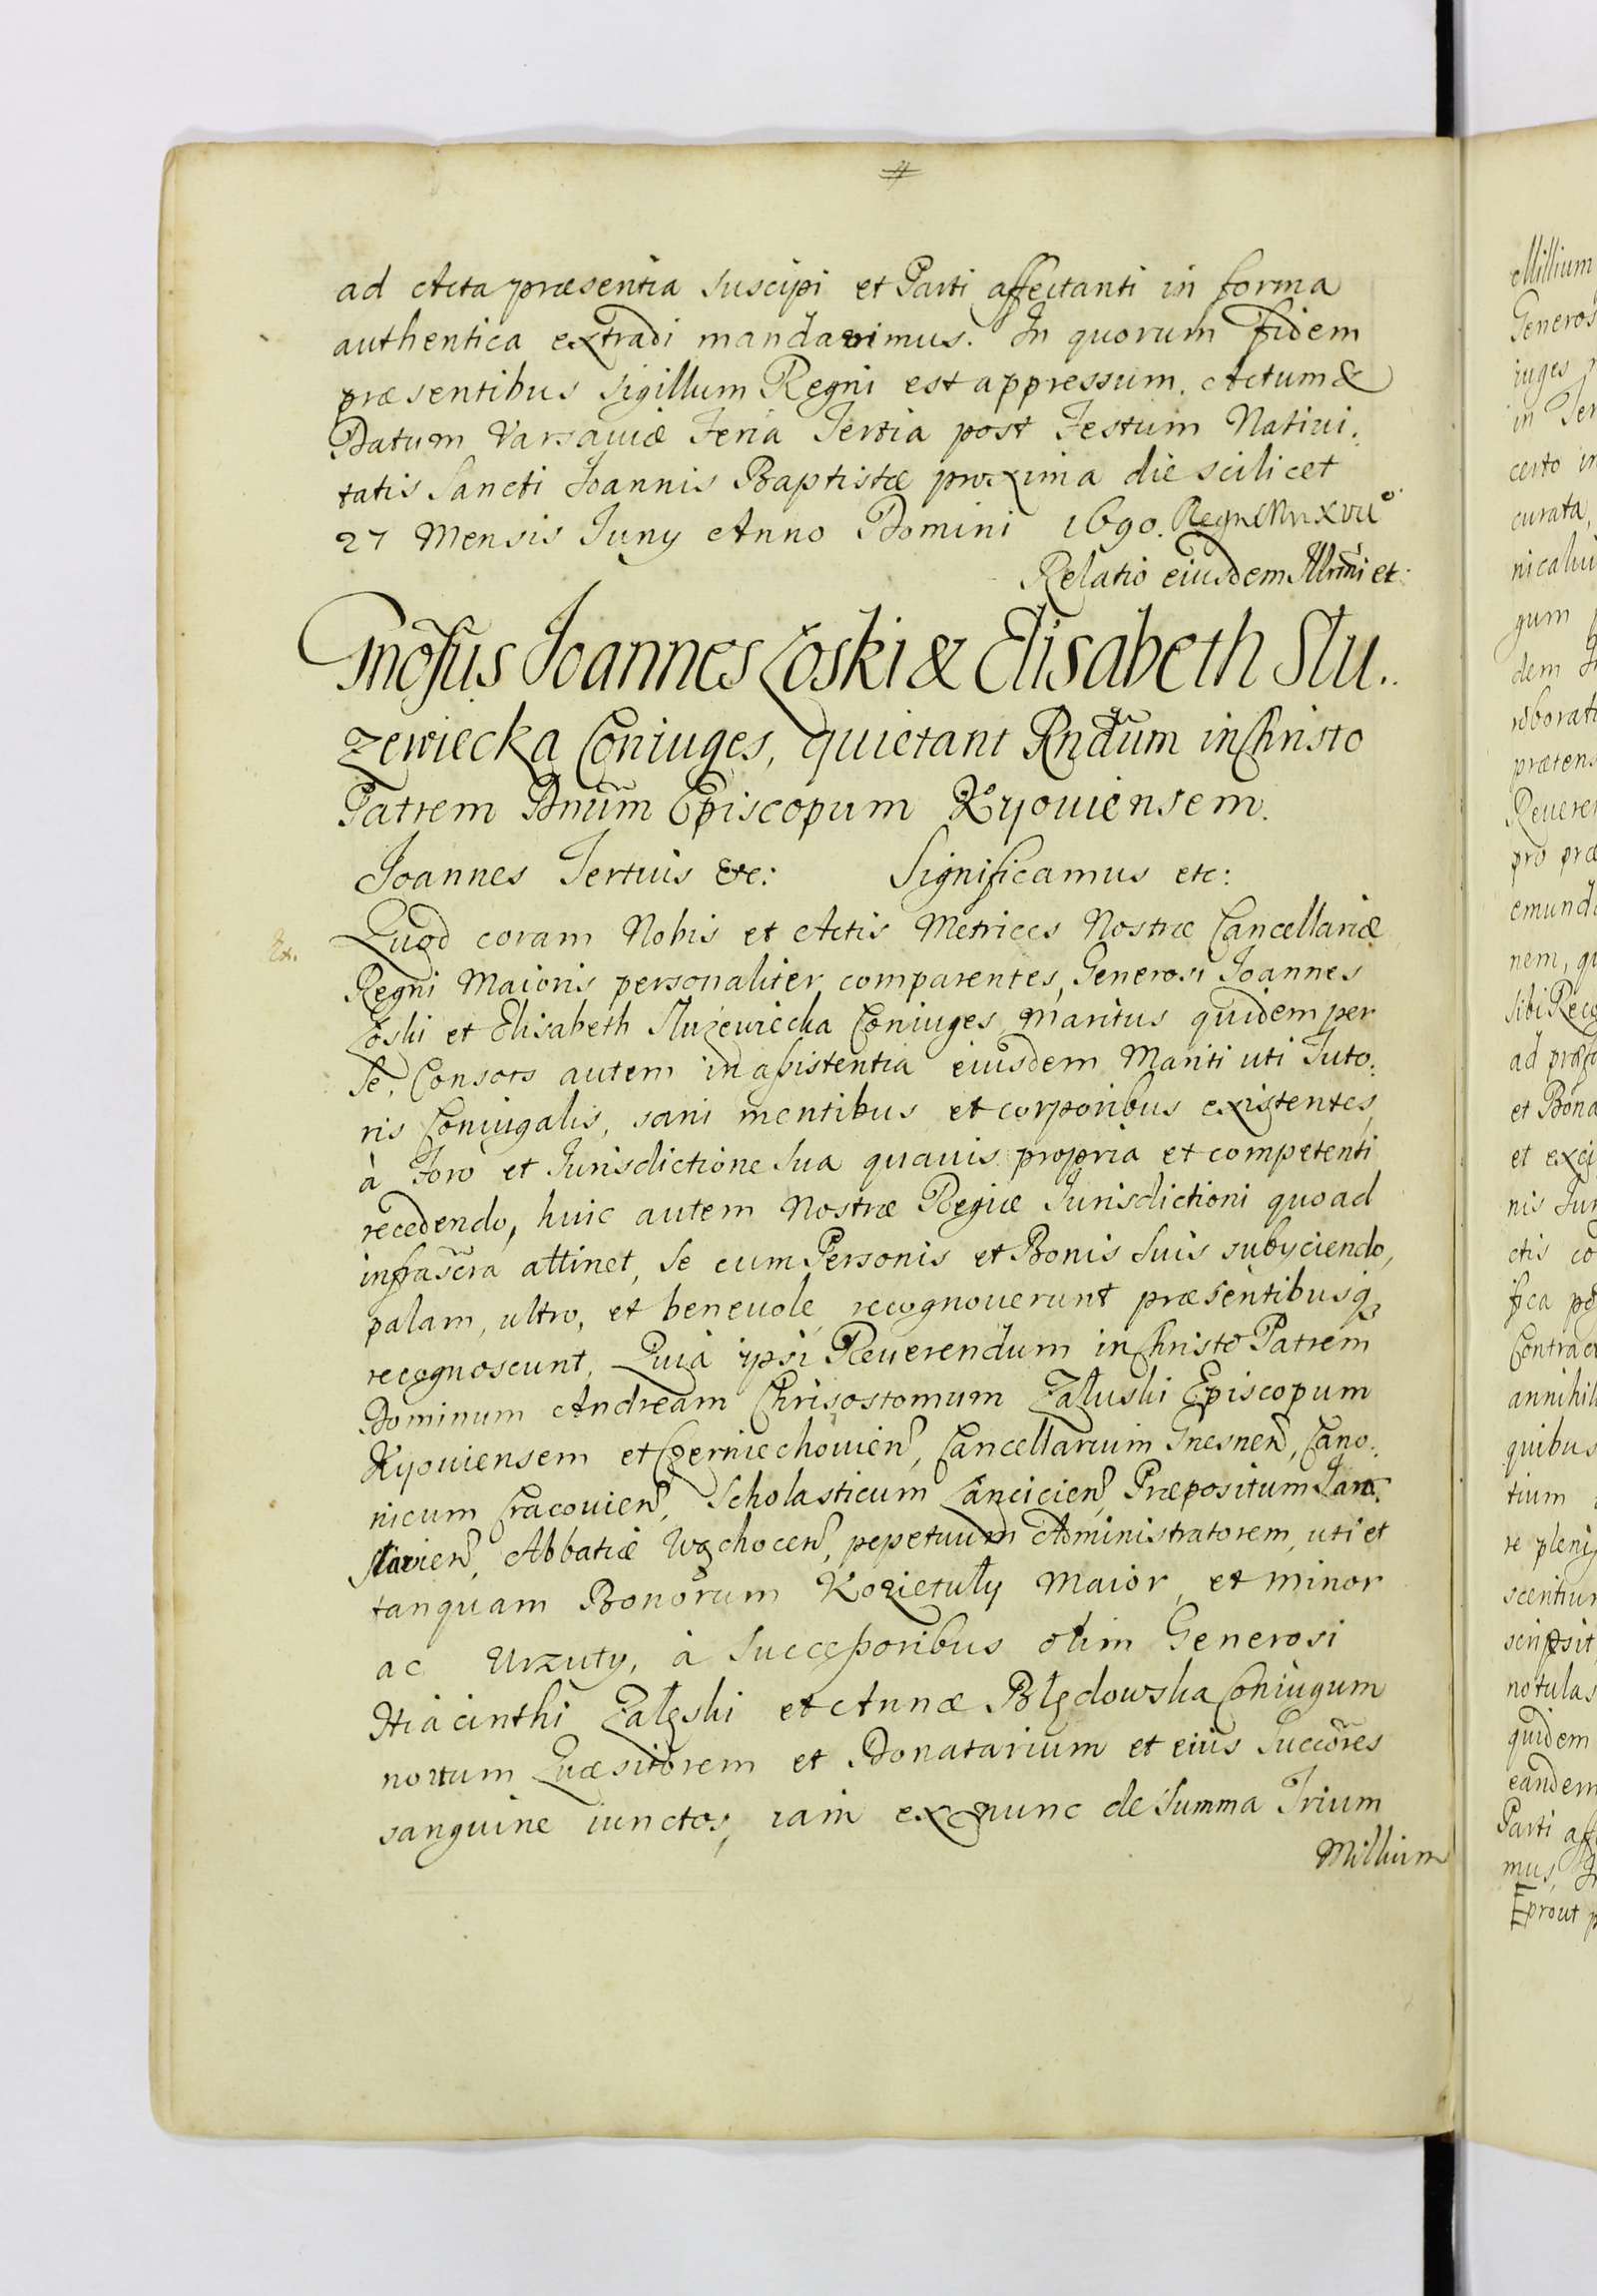 ad Acta præsentia suscipi et Parti affectanti in forma
authentica extradi mandavimus. In quorum fidem
præsentibus Sigillum Regni est appressum. Actum &
Datum Varsaviæ Feria Tertia post Festum Nativi:
tatis Sancti Joannis Baptistæ proxima die scilicet
27 Mensis Juny Anno Domini 1690. Regni Nri XVII°
Relatio eiusdem Illrmi et
Gnosus Joannes Łoski & Elisabeth Słu..
zewiecka Coniuges, quietant Rndum in Christo
Patrem Dnum Episcopum Kyouiensem.
Joannes Tertius etc: Significamus etc:
Ex.
Quod coram Nobis et Actis Metrices Nostræ Cancellariæ
Regni Maioris personaliter comparentes, Generosi Joannes
Łoski et Elisabeth Służewiecka Coniuges, Maritus quidem per
se, Consors autem in assistentia eiusdem Mariti uti Tuto:
ris Coniugalis, sani mentibus et corporibus existentes,
à Foro et Jurisdictione sua quauis propria et competenti
recedendo, huic autem Nostræ Regiæ Jurisdictioni quo ad
infrascra attinet, se cum Personis et Bonis suis subyciendo,
palam, ultro, et beneuole recognouerunt præsentibusq3
recognoscunt, Quia ipsi Reuerendum in Christo Patrem
Dominum Andream Chrisostomum Załuski Episcopum
Kyouiensem et Czerniechouien, Cancellarium Gnesnen, Cano:
nicum Cracouien, Scholasticum Lancicien, Præpositum Jaro:
slauien, Abbatiæ Wąchocen, pepetuum Administratorem, uti et
tanquam Bonorum Kozietuły Maior, et minor
ac Urzuty, à Successoribus olim Generosi
Hiacinthi Załęski et Annæ Błędowska Coniugum
nortum Quæsitorem et Donatarium et eius Succores
sanguine iunctos, iam ex nunc de Summa Trium
Millium
Millium
Generos
iuges
in Ter
certo in
curata,
nicalui
gum
dem
roborat
prætens
Reueren
pro præ
emunda
nem, qu
sibi Reco
ad præf
et Bona
et exci
nis Jur
ctis co
fica
Contract
annihil
quibus
tium
re pleni
scentiu
scripsit
notulas
quidem
eandem
Parti aff
mus,
Eprout p